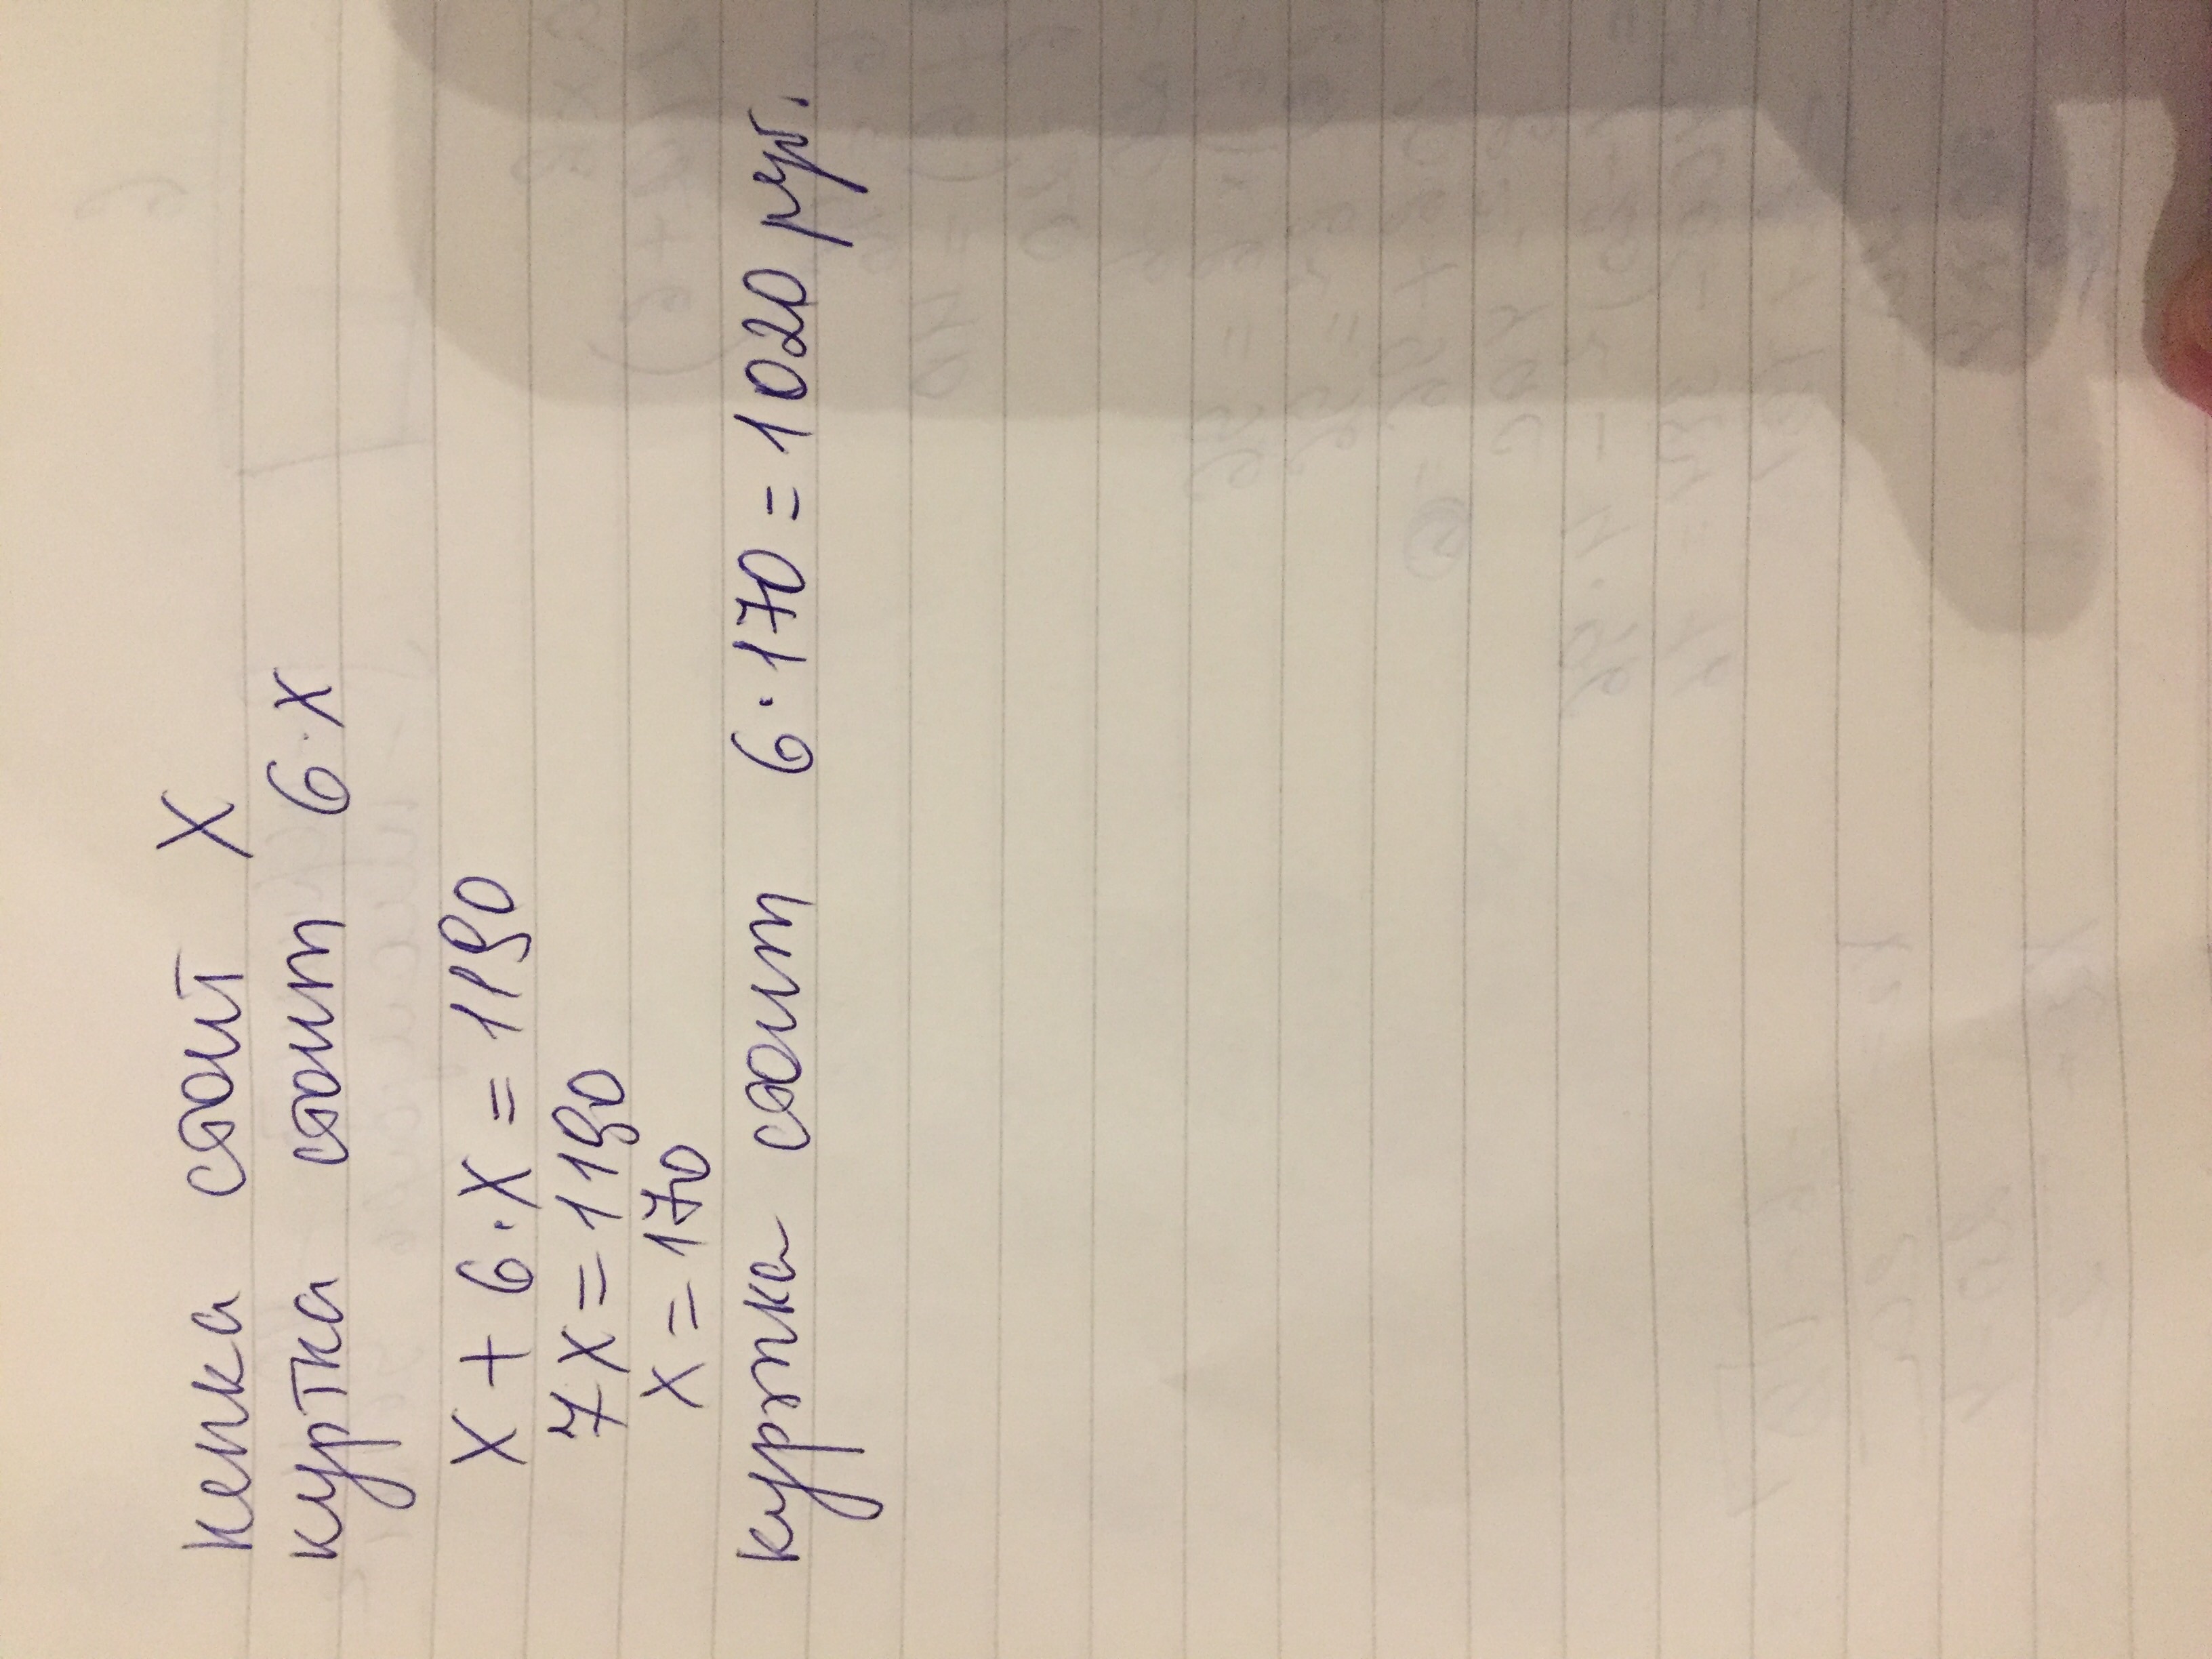 кепка стоит X
куртка стоит 6·X
X + 6·X = 1190
7X = 1190
X = 170
куртка стоит 6·170 = 1020 руб.